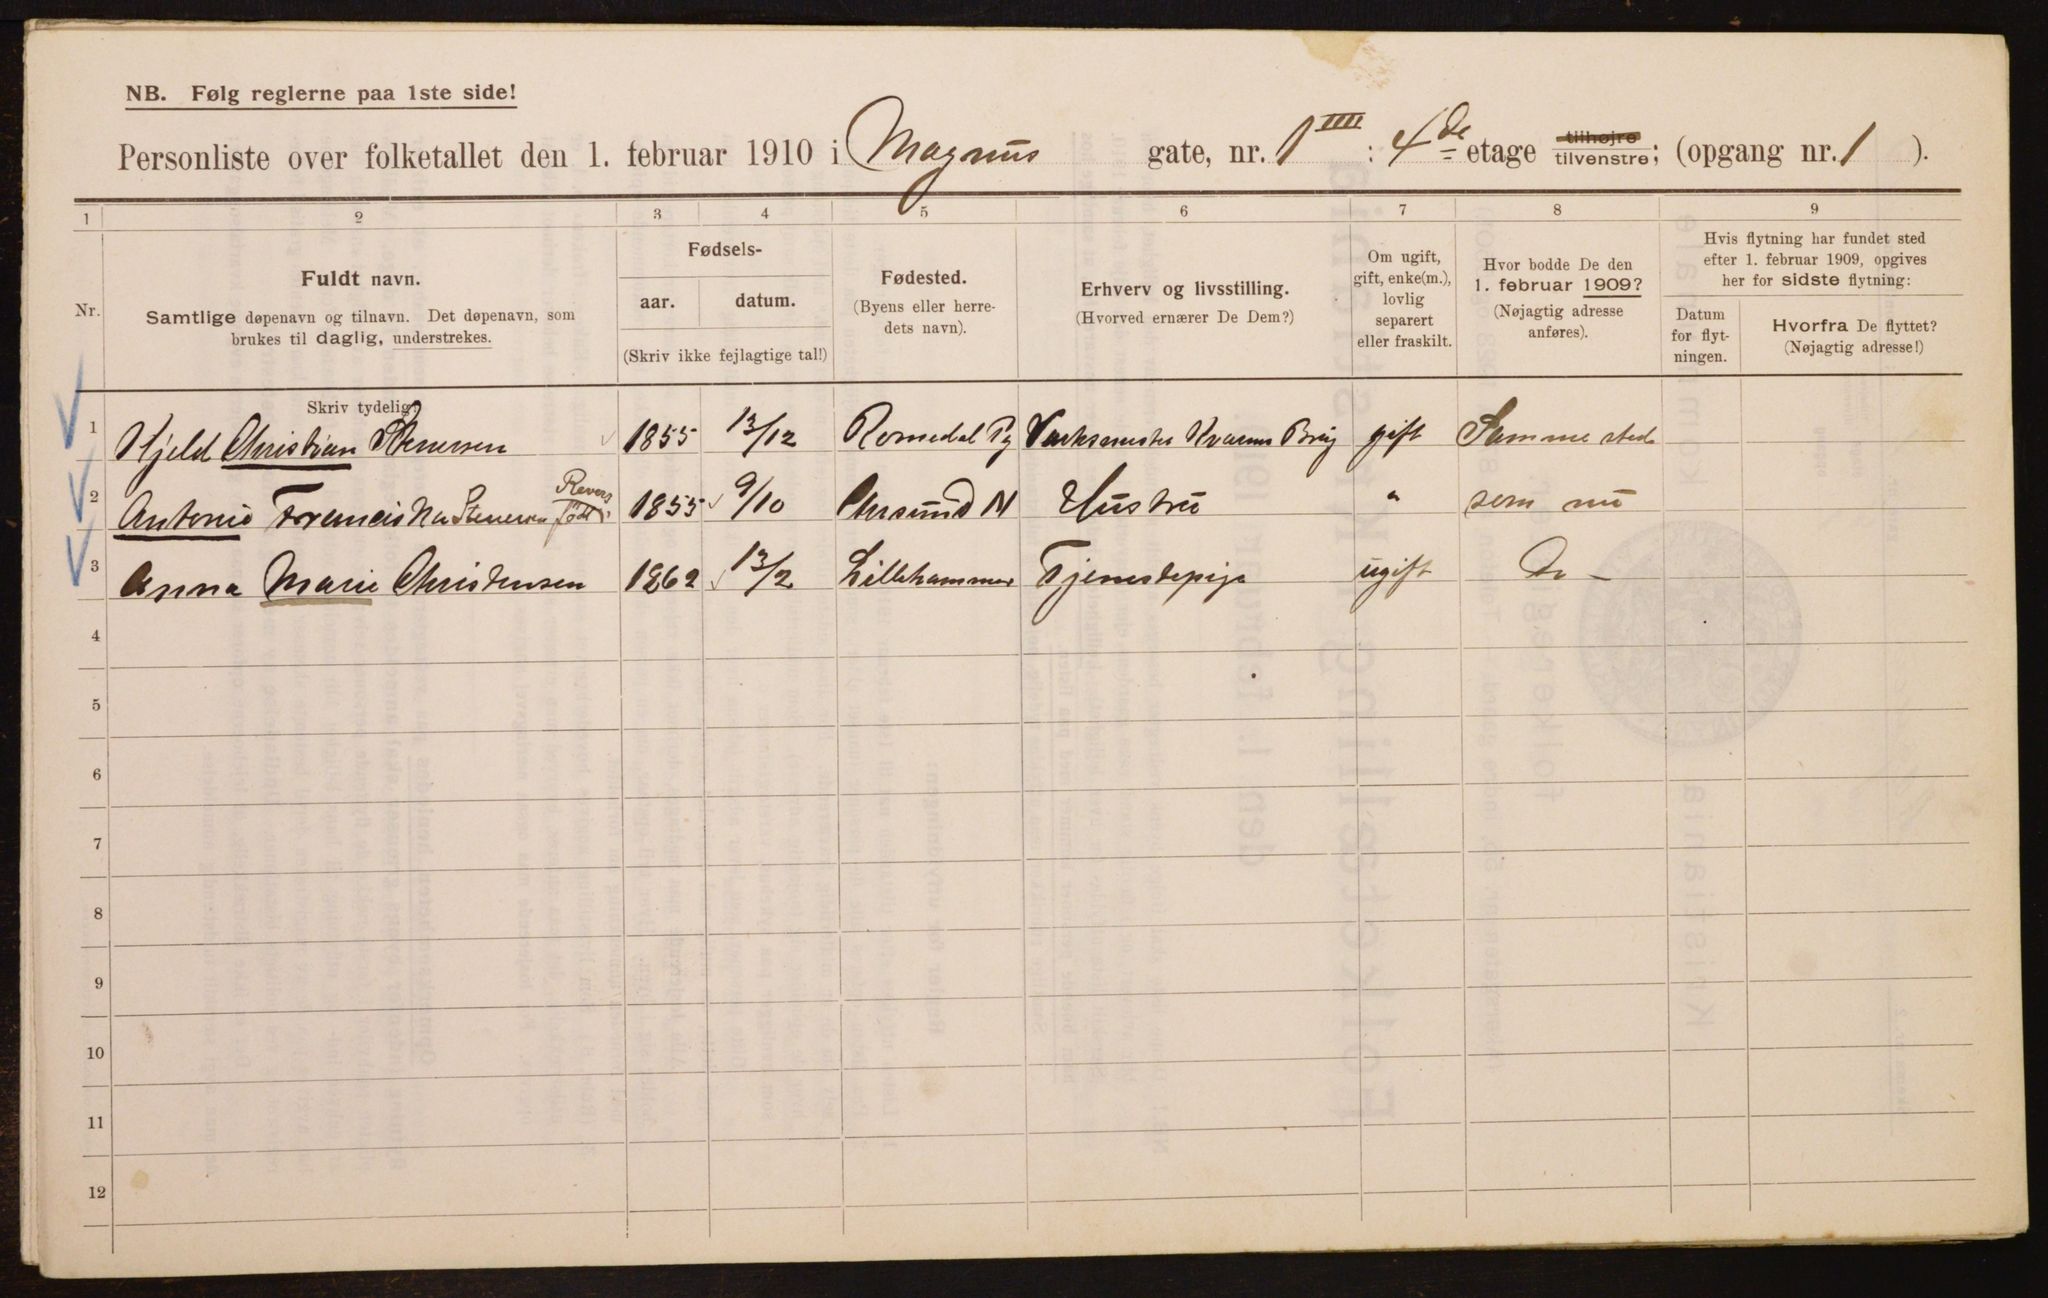 NB. Følg reglerne paa 1ste side!
Personliste over folketallet den 1. februar 1910 i Magnus gate, nr. 1 IIII : 4de etage tilhøjre tilvenstre; (opgang nr. 1 ).
1 2 3 4 5 6 7 8 9
Nr.
Fuldt navn.
Samtlige døpenavn og tilnavn. Det døpenavn, som
brukes til daglig, understrekes.
Skriv tydelig!
Fødsels-
aar. datum.
(Skriv ikke fejlagtige tal!)
Fødested.
(Byens eller herre-
dets navn).
Erhverv og livsstilling.
(Hvorved ernærer De Dem?)
Om ugift,
gift, enke(m.),
lovlig
separert
eller fraskilt.
Hvor bodde De den
1. februar 1909?
(Nøjagtig adresse
anføres).
Hvis flytning har fundet sted
efter 1. februar 1909, opgives
her for sidste flytning:
Datum
for flyt-
ningen.
Hvorfra De flyttet?
(Nøjagtig adresse!)
1 Hjeld Christian Stenersen 1855 13/12 Romedal Pg Kværner Brug gift Samme sted
2 Antonie Franciska Stenersen født 1855 9/10 Chrsund N Hustru " som nu
3 Anna Marie Christensen 1862 13/2 Lillehammer Tjenestepige ugift Do -
4
5
6
7
8
9
10
11
12